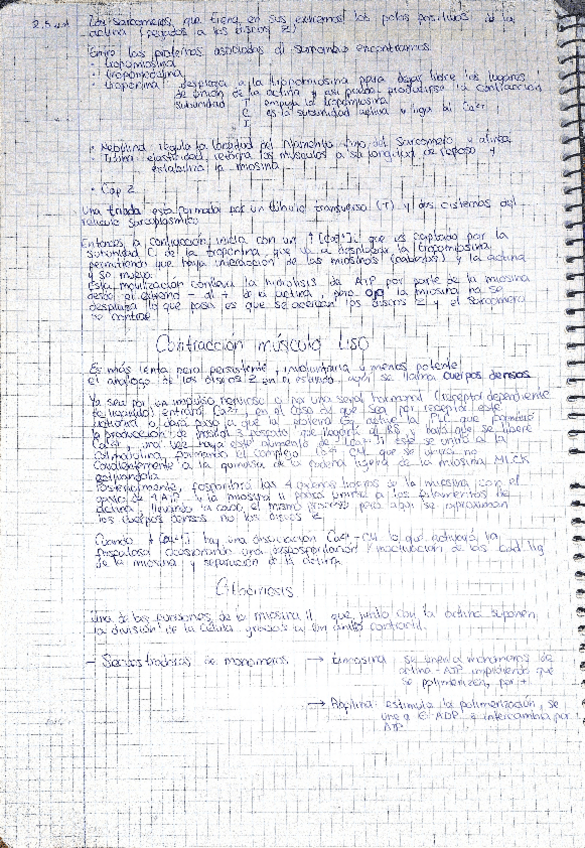 los sarcomeros, que tiene en sus extremos los polos positivos de la
actina (pegados a los discos Z)
Entre las proteinas asociadas al sarcomero encontramos
· tropomiosina
· troponina: desplaza a la tropomiosina para dejar libre los lugares
de unión de la actina y así pueda producirse la contracción
subunidad T empuja la tropomiosina
C es la subunidad activa a liga al Ca2+
I
· Nebulina: regula la longitud del filamento fino del sarcomero actina
· Titina: elasticidad, retorna los músculos a su longitud de reposo y
estabiliza la miosina
· Cap Z
Una triada esta formada por un túbulo transverso (T) y dos cisternas del
retículo sarcoplásmico
Entonces, la contracción inicia con un ↑[Ca2+], que es captado por la
subunidad C de la troponina, que va a desplazar la tropomiosina
permitiendo que haya interacción de las miosinas (cabezas) y la actina
y se mueva.
Esta movilización conlleva la hidrólisis de ATP por parte de la miosina
desde el extremo - al + de la actina, pero la miosina no se
desplaza lo que pasa es que se acercan los discos Z y el sarcomero
se contrae
Contracción músculo liso
Es más lenta pero persistente, involuntaria y menos potente
el análogo de los discos Z en el estriado, aquí se llama cuerpos densos
Ya sea por un impulso nervioso o por una señal hormonal (receptor dependiente
de ligando) entrará Ca2+, en el caso de que sea por receptor este
la producción de inositol 3 fosfato, que llegará al RS y hará que se libere
Ca2+, una vez haya este aumento de [Ca2+] este se unirá a la
calmodulina, formando el complejo Ca2+-CM que se unirá no
covalentemente a la quinasa de la cadena ligera de la miosina MLCK
Posteriormente, fosforilará las 4 cadenas ligeras de la miosina (con el
gasto de 4 ATP) y la miosina II podrá unirse a los filamentos de
actina, llevando a cabo el mismo proceso pero aquí se aproximan
los cuerpos densos no los discos Z
Cuando ↓[Ca2+] hay una disociación Ca2+-CM lo que activará la
fosfatasa ocasionando una desfosforilación / inactivación de las cad. lig
de la miosina y separación de la actina.
Citocinesis
Una de las funciones de la miosina II que junto con la actina suponen
la división de la célula gracias a un anillo contráctil
- Secuestradoras de monómeros → timosina: se unen a monómeros de
actina-ATP impidiendo que
se polimerizen, por +
→ Profilina: estimula la polimerización, se
une a G-ADP e intercambia por
ATP